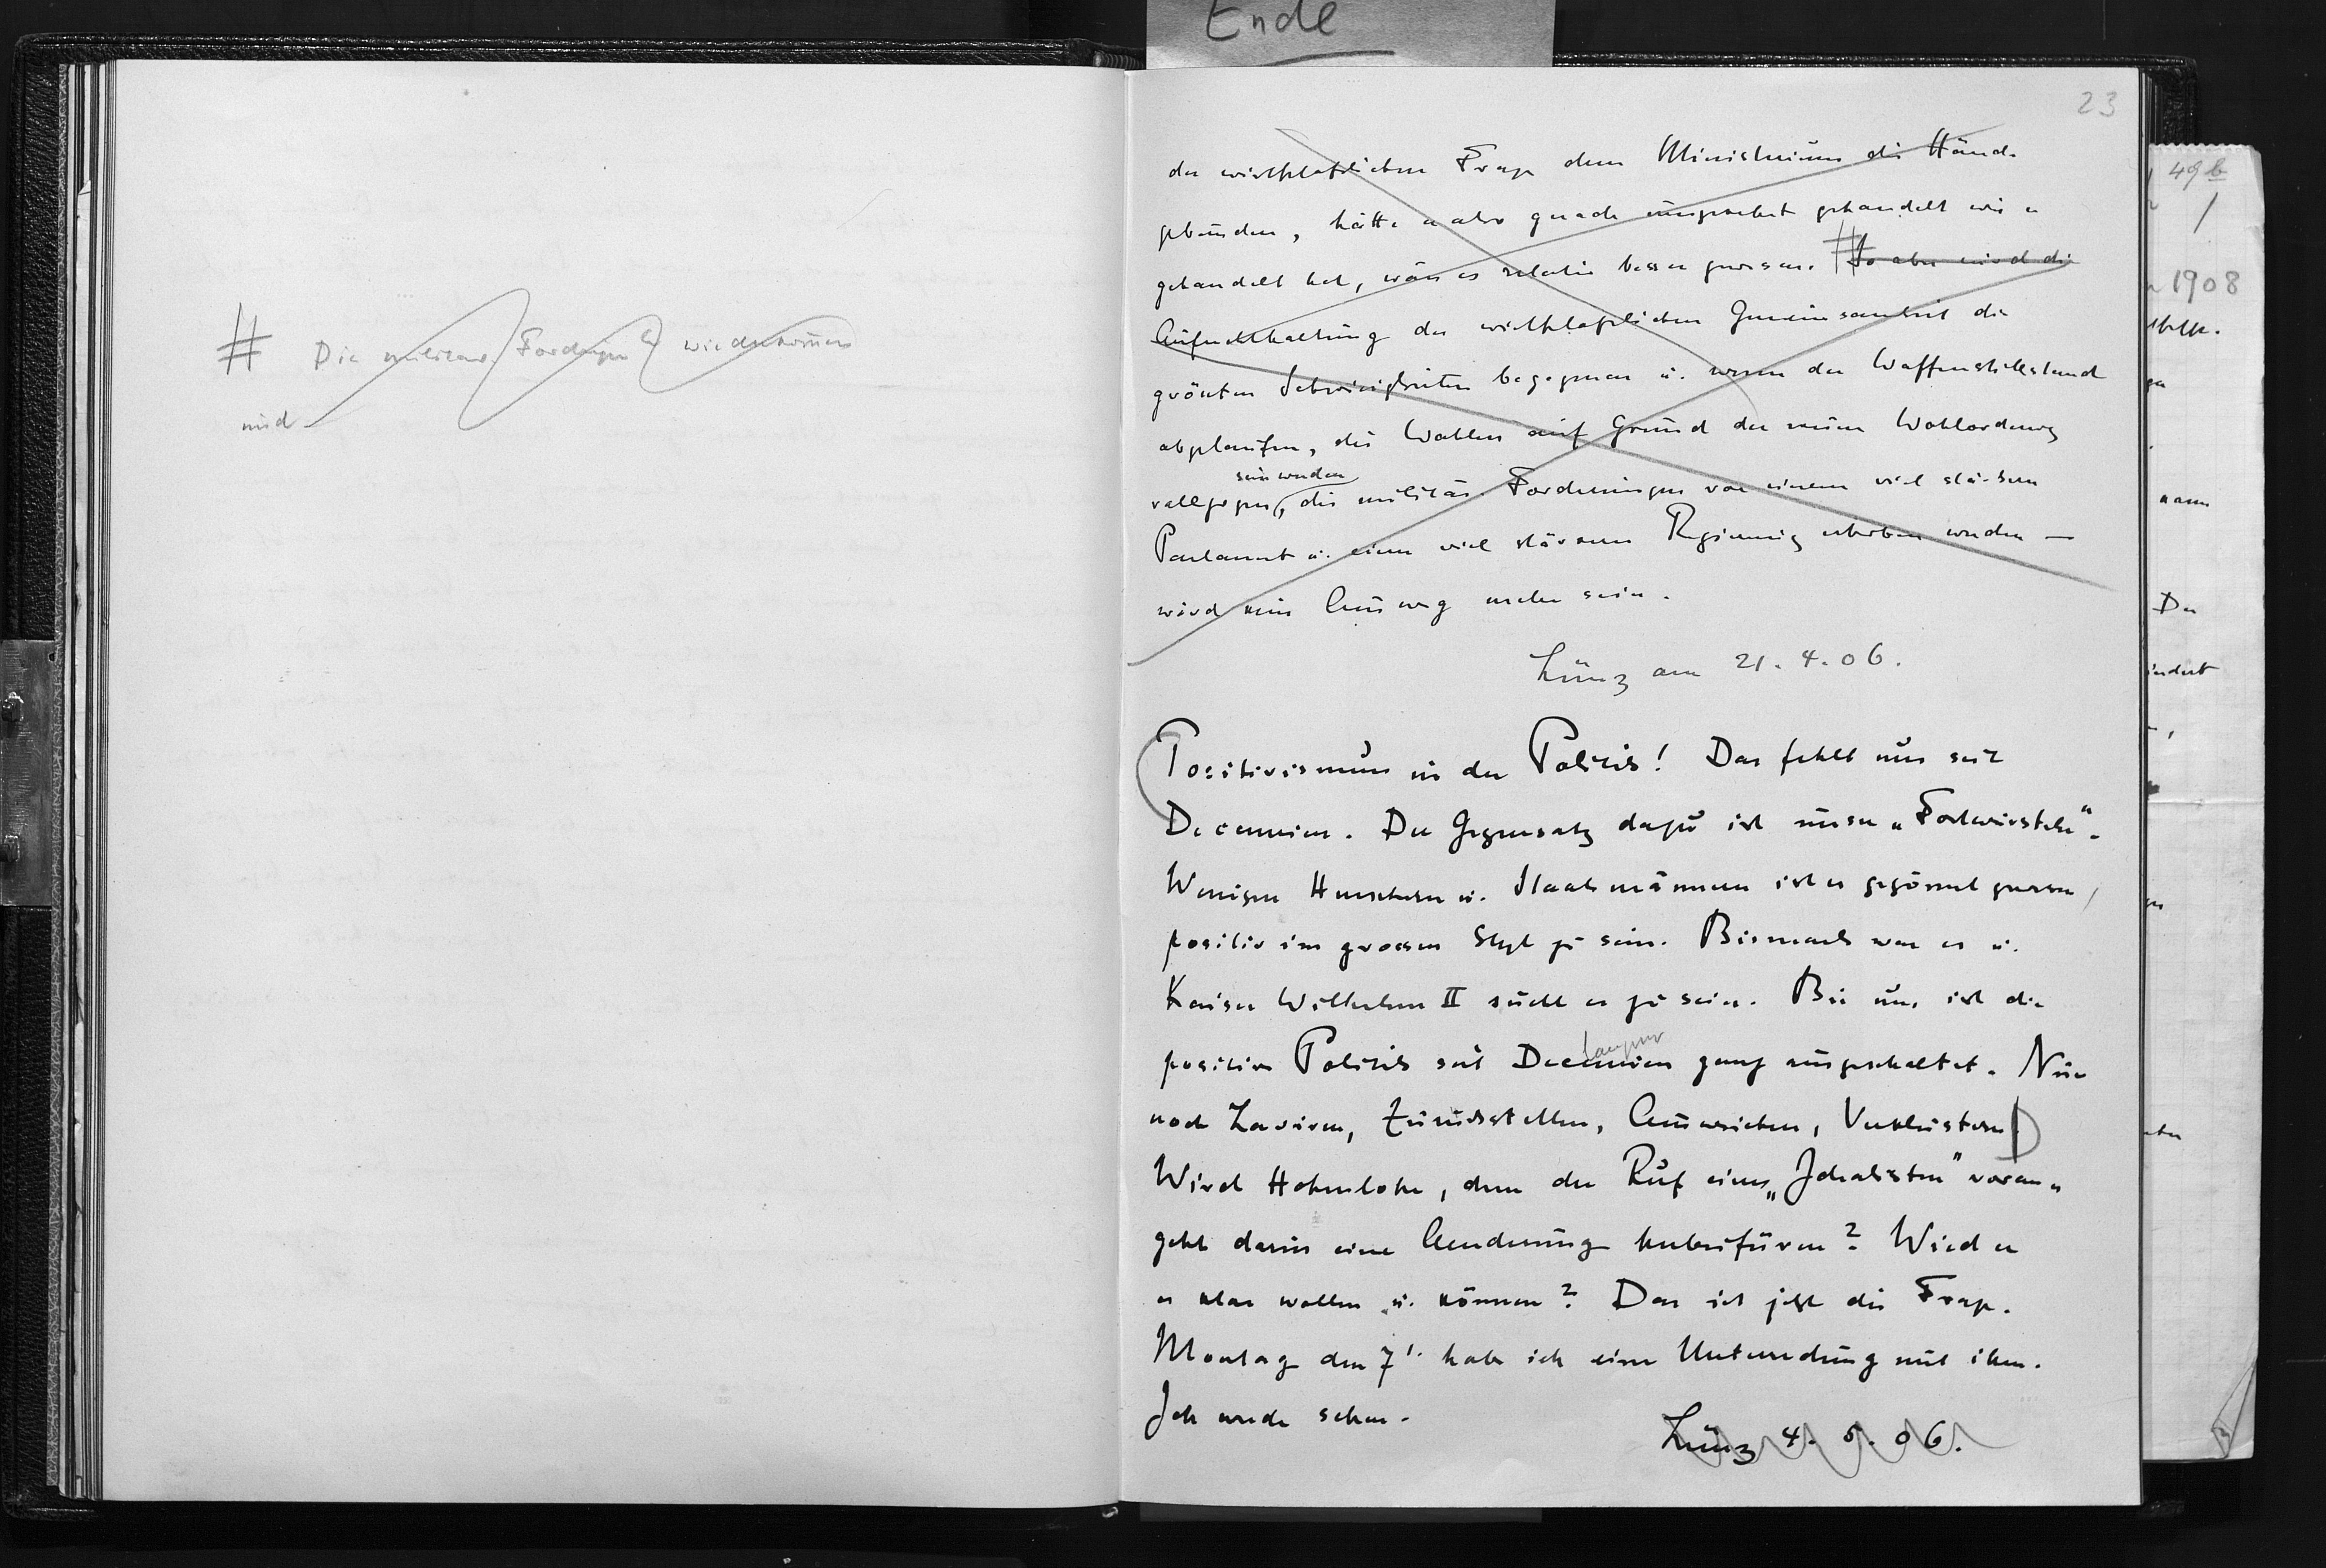 Ende
# Die militär. Forderungen wiederkommen
und
23
der wirthschaftlichen Frage dem Ministerium die Hände
gebunden, hätte er also gerade umgekehrt gehandelt wie er
gehandelt hat, wäre es relativ besser gewesen. # So aber wird die
Aufrechthaltung der wirthschaftlichen Gemeinsamkeit den
größten Schwierigkeiten begegnen u. wenn der Waffenstillstand
abgelaufen, die Wahlen auf Grund der neuen Wahlordnung
sein werden
vollzogen, die militär. Forderungen von einem viel stärkeren
Parlament u. einer viel stärkeren Regierung erhoben werden —
wird kein Ausweg mehr sein.
Lünz am 21. 4. 06.
Positivismus in der Politik! Das fehlt uns seit
Decennien. Der Gegensatz dazu ist unser „Fortwursteln“.
Wenigen Herrschern u. Staatsmännern ist es gegönnt gewesen,
positiv im grossen Styl zu sein. Bismarck war es u.
Kaiser Wilhelm II sucht es zu sein. Bei uns ist die
langem
positive Politik seit Decennien ganz ausgeschaltet. Nur
noch Laviren, Zurückstellen, Ausweichen, Verkleistern.
Wird Hohenlohe, dem der Ruf eines „Idealisten“ voran-
geht darin eine Aenderung herbeifüren? Wird er
es klar wollen u. können? Das ist jetzt die Frage.
Montag den 7t. habe ich eine Unterredung mit ihm.
Ich werde sehen.
Lünz 4. 5. 06.
49b
/
1908
kann
Der
indert